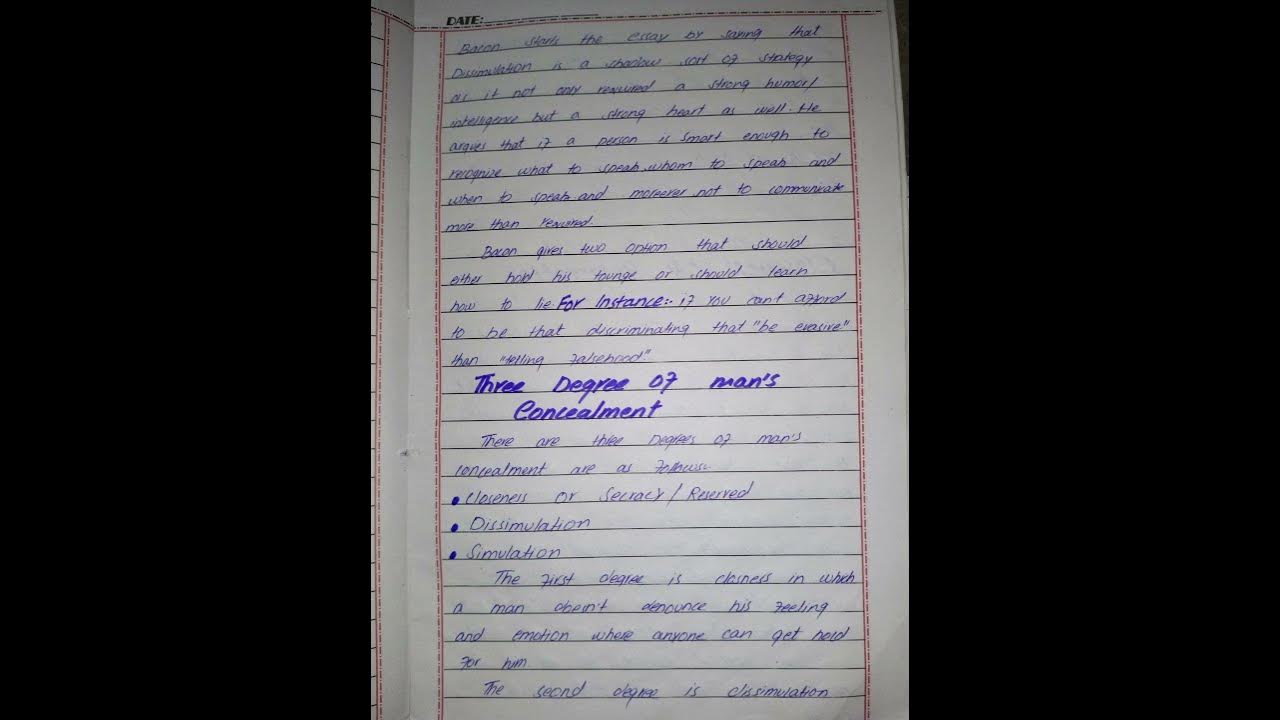 DATE:
Bacon starts the essay by saying that
Dissimulation is a shadow sort of strategy
as it not only required a strong humor/
intelligence but a strong heart as well. He
argues that if a person is smart enough to
recognize what to speak, whom to speak and
when to speak and moreover not to communicate
more than required.
Bacon gives two option that should
either hold his tounge or should learn
how to lie. For Instance:- if you can't afford
to be that discriminating that "be evasive"
than "telling falsehood".
Three Degree of man's
Concealment
There are three Degrees of man's
concealment are as follows:-
• Closeness or Secracy / Reserved
• Dissimulation
• Simulation
The first degree is closness in which
a man doesn't denounce his feeling
and emotion where anyone can get hold
for him
The second degree is dissimulation